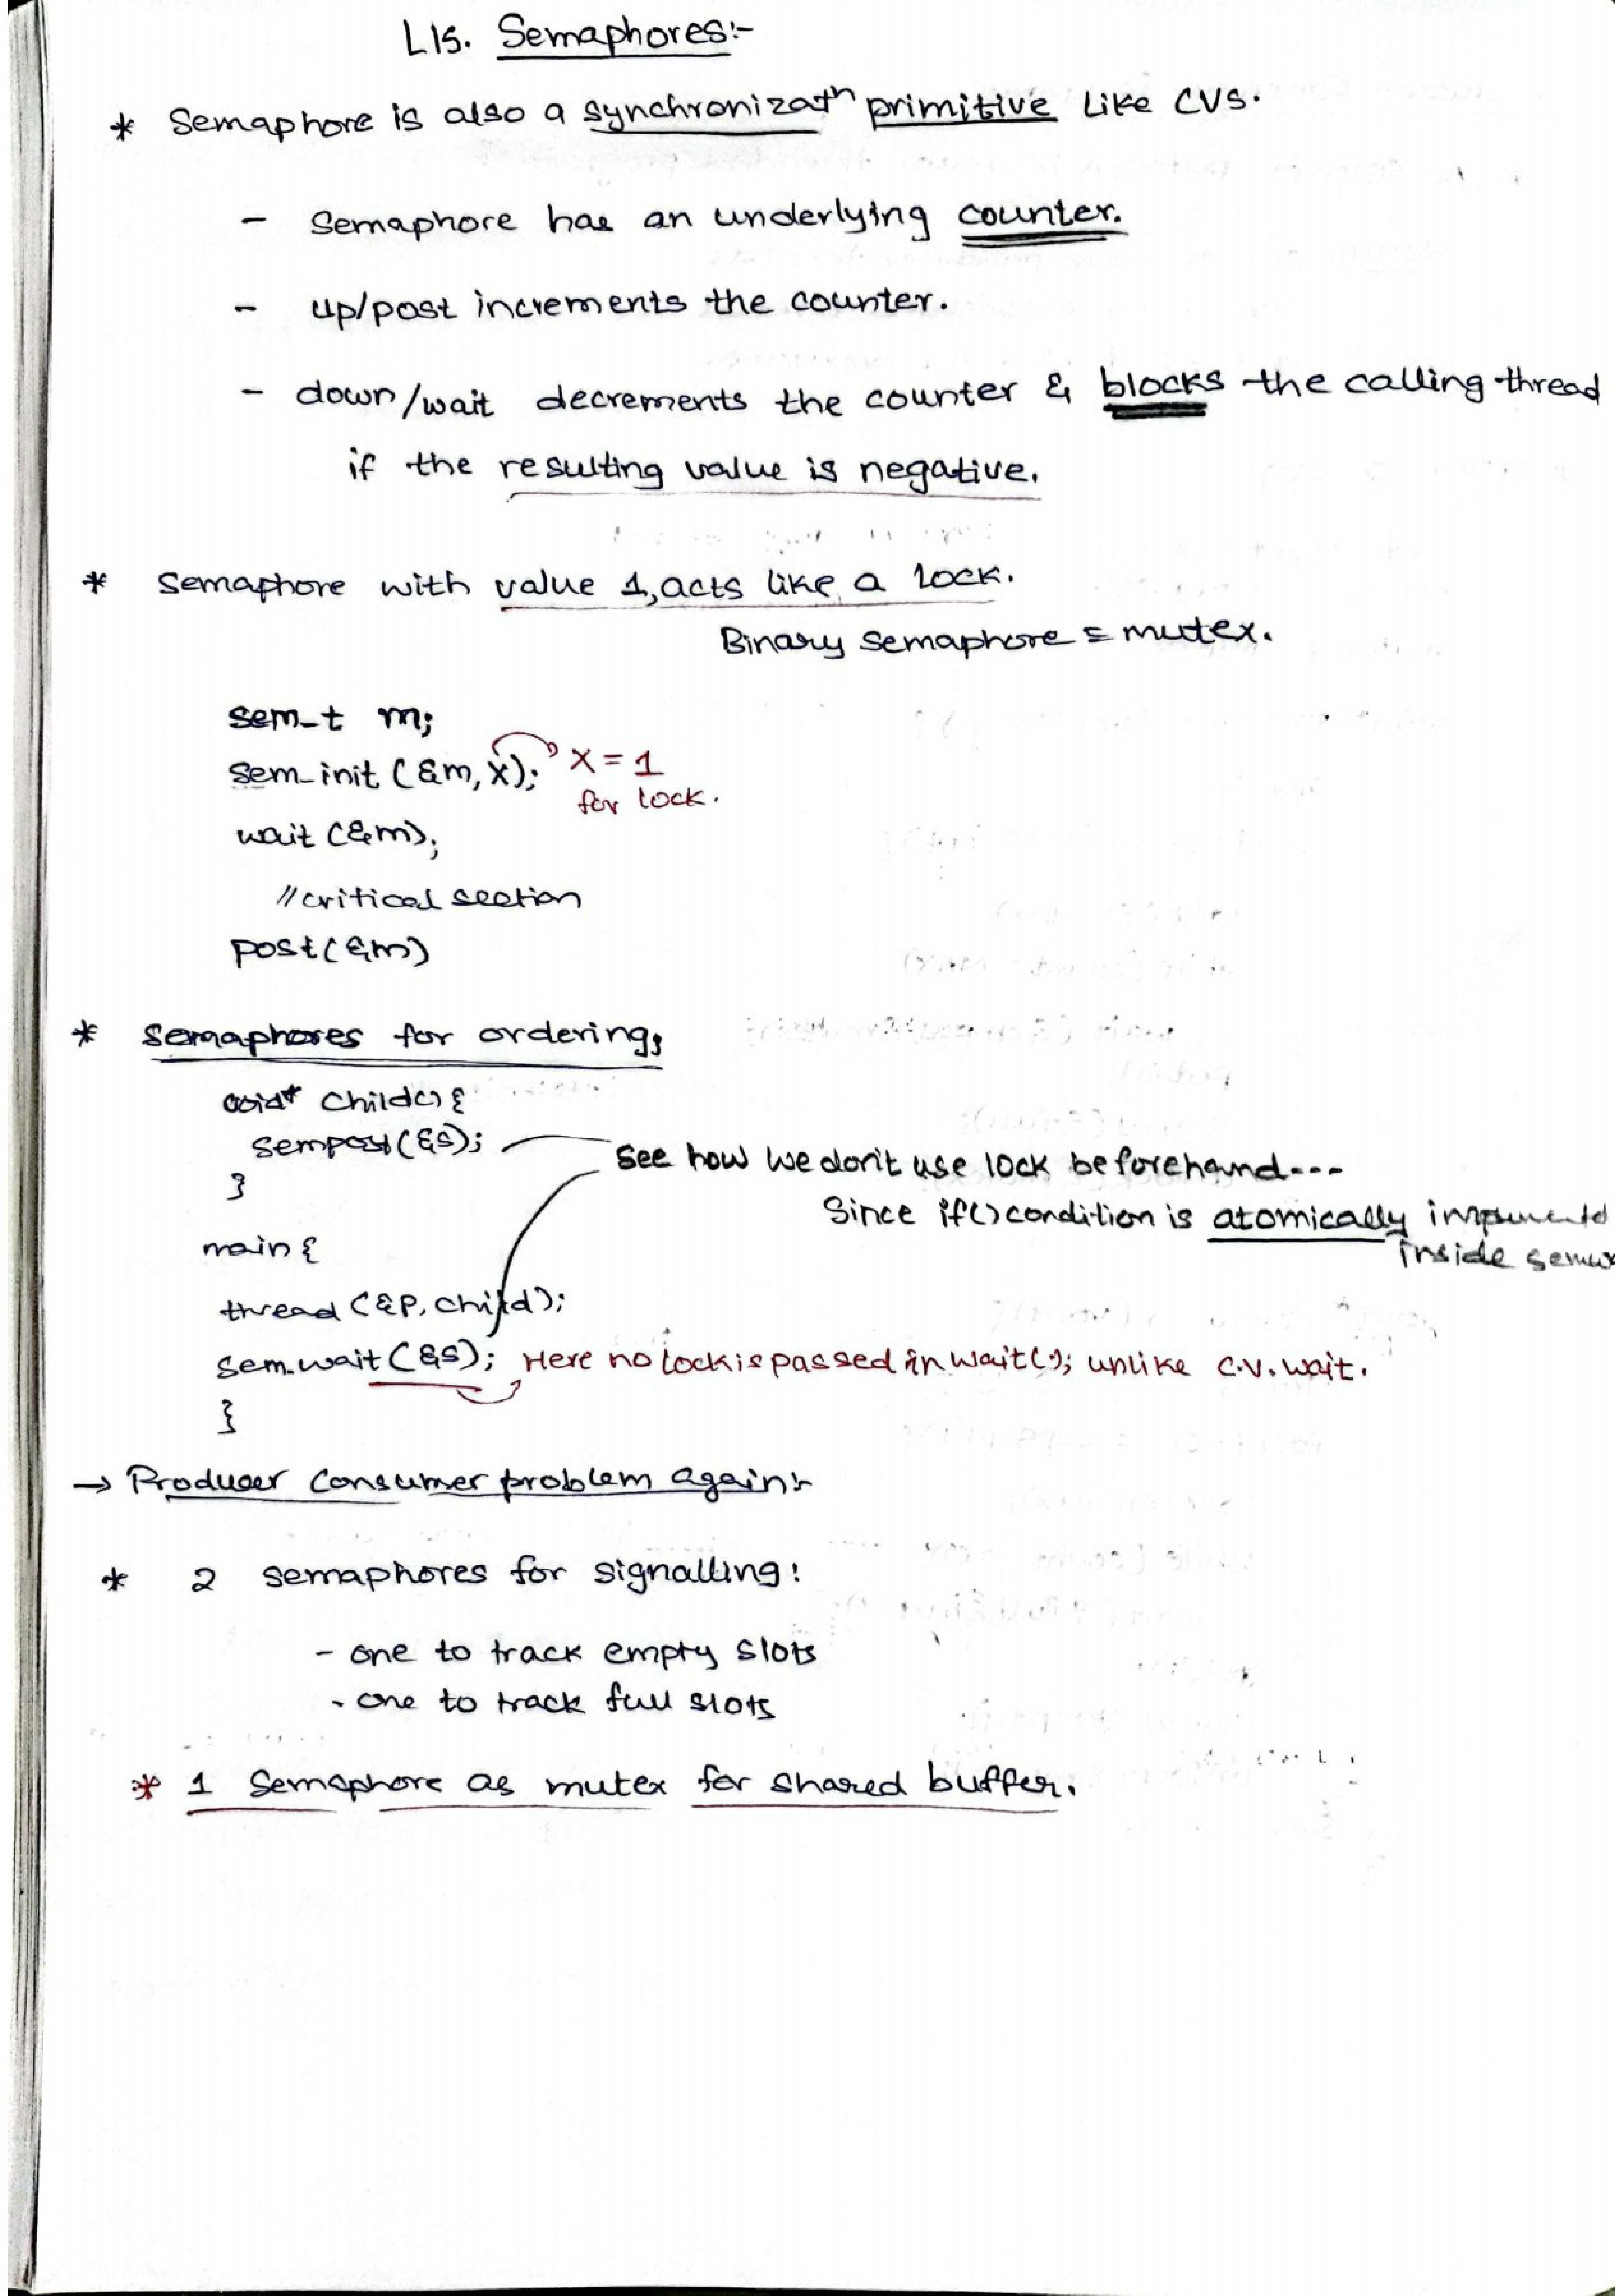 L15. Semaphores:-
* Semaphore is also a synchronizatn primitive like CVs.
- Semaphore has an underlying counter.
- up/post increments the counter.
- down/wait decrements the counter & blocks the calling thread
if the resulting value is negative.
* Semaphore with value 1, acts like a lock.
Binary Semaphore = mutex.
sem_t m;
sem_init (&m, x); x = 1
for lock.
wait (&m);
// critical section
post (&m)
* Semaphores for ordering;
void* child() {
sempost (&s);
}
See how we don't use lock beforehand...
Since if() condition is atomically
inside
main {
thread (&p, child);
sem.wait (&s); Here no lock is passed in wait(); unlike c.v. wait.
}
→ Producer Consumer problem again:-
* 2 semaphores for signalling:
- one to track empty slots
- one to track full slots
* 1 Semaphore as mutex for shared buffer.